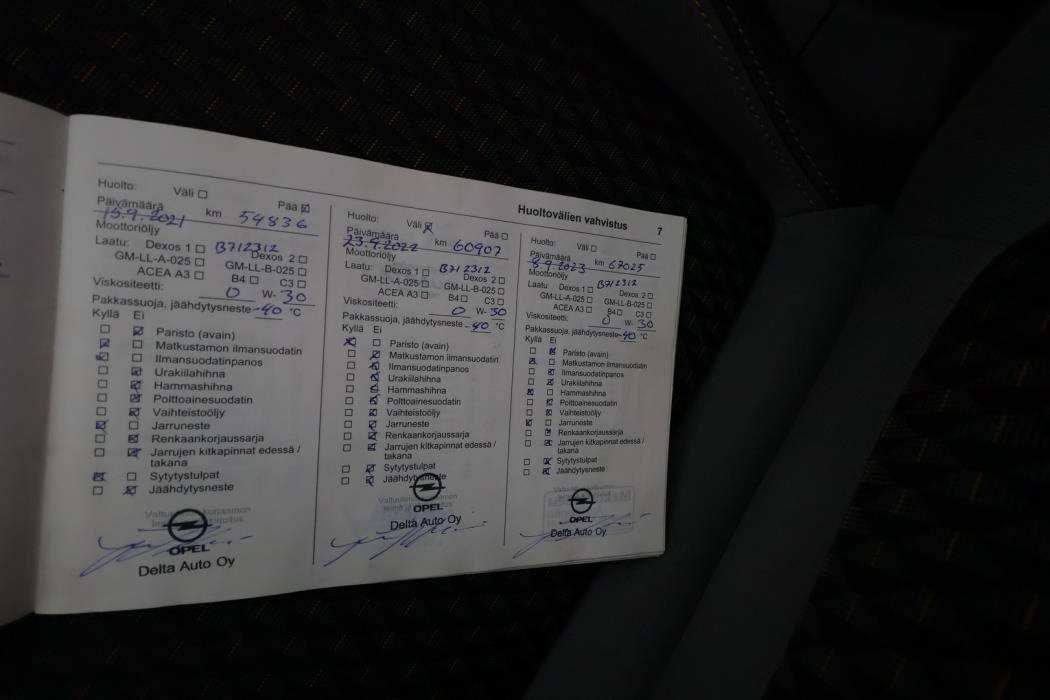 Huoltovälien vahvistus 7
Huolto: Väli Pää
Päivämäärä
15.9.2021 km 54836
Moottoriöljy
Laatu: Dexos 1 B712312 Dexos 2
GM-LL-A-025 GM-LL-B-025
ACEA A3 B4 C3
Viskositeetti: 0 W- 30
Pakkassuoja, jäähdytysneste -40 °C
Kyllä Ei
Paristo (avain)
Matkustamon ilmansuodatin
Ilmansuodatinpanos
Urakiilahihna
Hammashihna
Polttoainesuodatin
Vaihteistoöljy
Jarruneste
Renkaankorjaussarja
Jarrujen kitkapinnat edessä /
takana
Sytytystulpat
Jäähdytysneste
OPEL
Delta Auto Oy
Huolto: Väli Pää
Päivämäärä
23.9.2022 km 60907
Moottoriöljy
Laatu: Dexos 1 B712312 Dexos 2
GM-LL-A-025 GM-LL-B-025
ACEA A3 B4 C3
Viskositeetti: 0 W- 30
Pakkassuoja, jäähdytysneste -40 °C
Kyllä Ei
Paristo (avain)
Matkustamon ilmansuodatin
Ilmansuodatinpanos
Urakiilahihna
Hammashihna
Polttoainesuodatin
Vaihteistoöljy
Jarruneste
Renkaankorjaussarja
Jarrujen kitkapinnat edessä /
takana
Sytytystulpat
Jäähdytysneste
OPEL
Delta Auto Oy
Huolto: Väli Pää
Päivämäärä
9.2023 km 67025
Moottoriöljy
Laatu: Dexos 1 B712312 Dexos 2
GM-LL-A-025 GM-LL-B-025
ACEA A3 B4 C3
Viskositeetti: 0 W- 30
Pakkassuoja, jäähdytysneste -40 °C
Kyllä Ei
Paristo (avain)
Matkustamon ilmansuodatin
Ilmansuodatinpanos
Urakiilahihna
Hammashihna
Polttoainesuodatin
Vaihteistoöljy
Jarruneste
Renkaankorjaussarja
Jarrujen kitkapinnat edessä /
takana
Sytytystulpat
Jäähdytysneste
OPEL
Delta Auto Oy